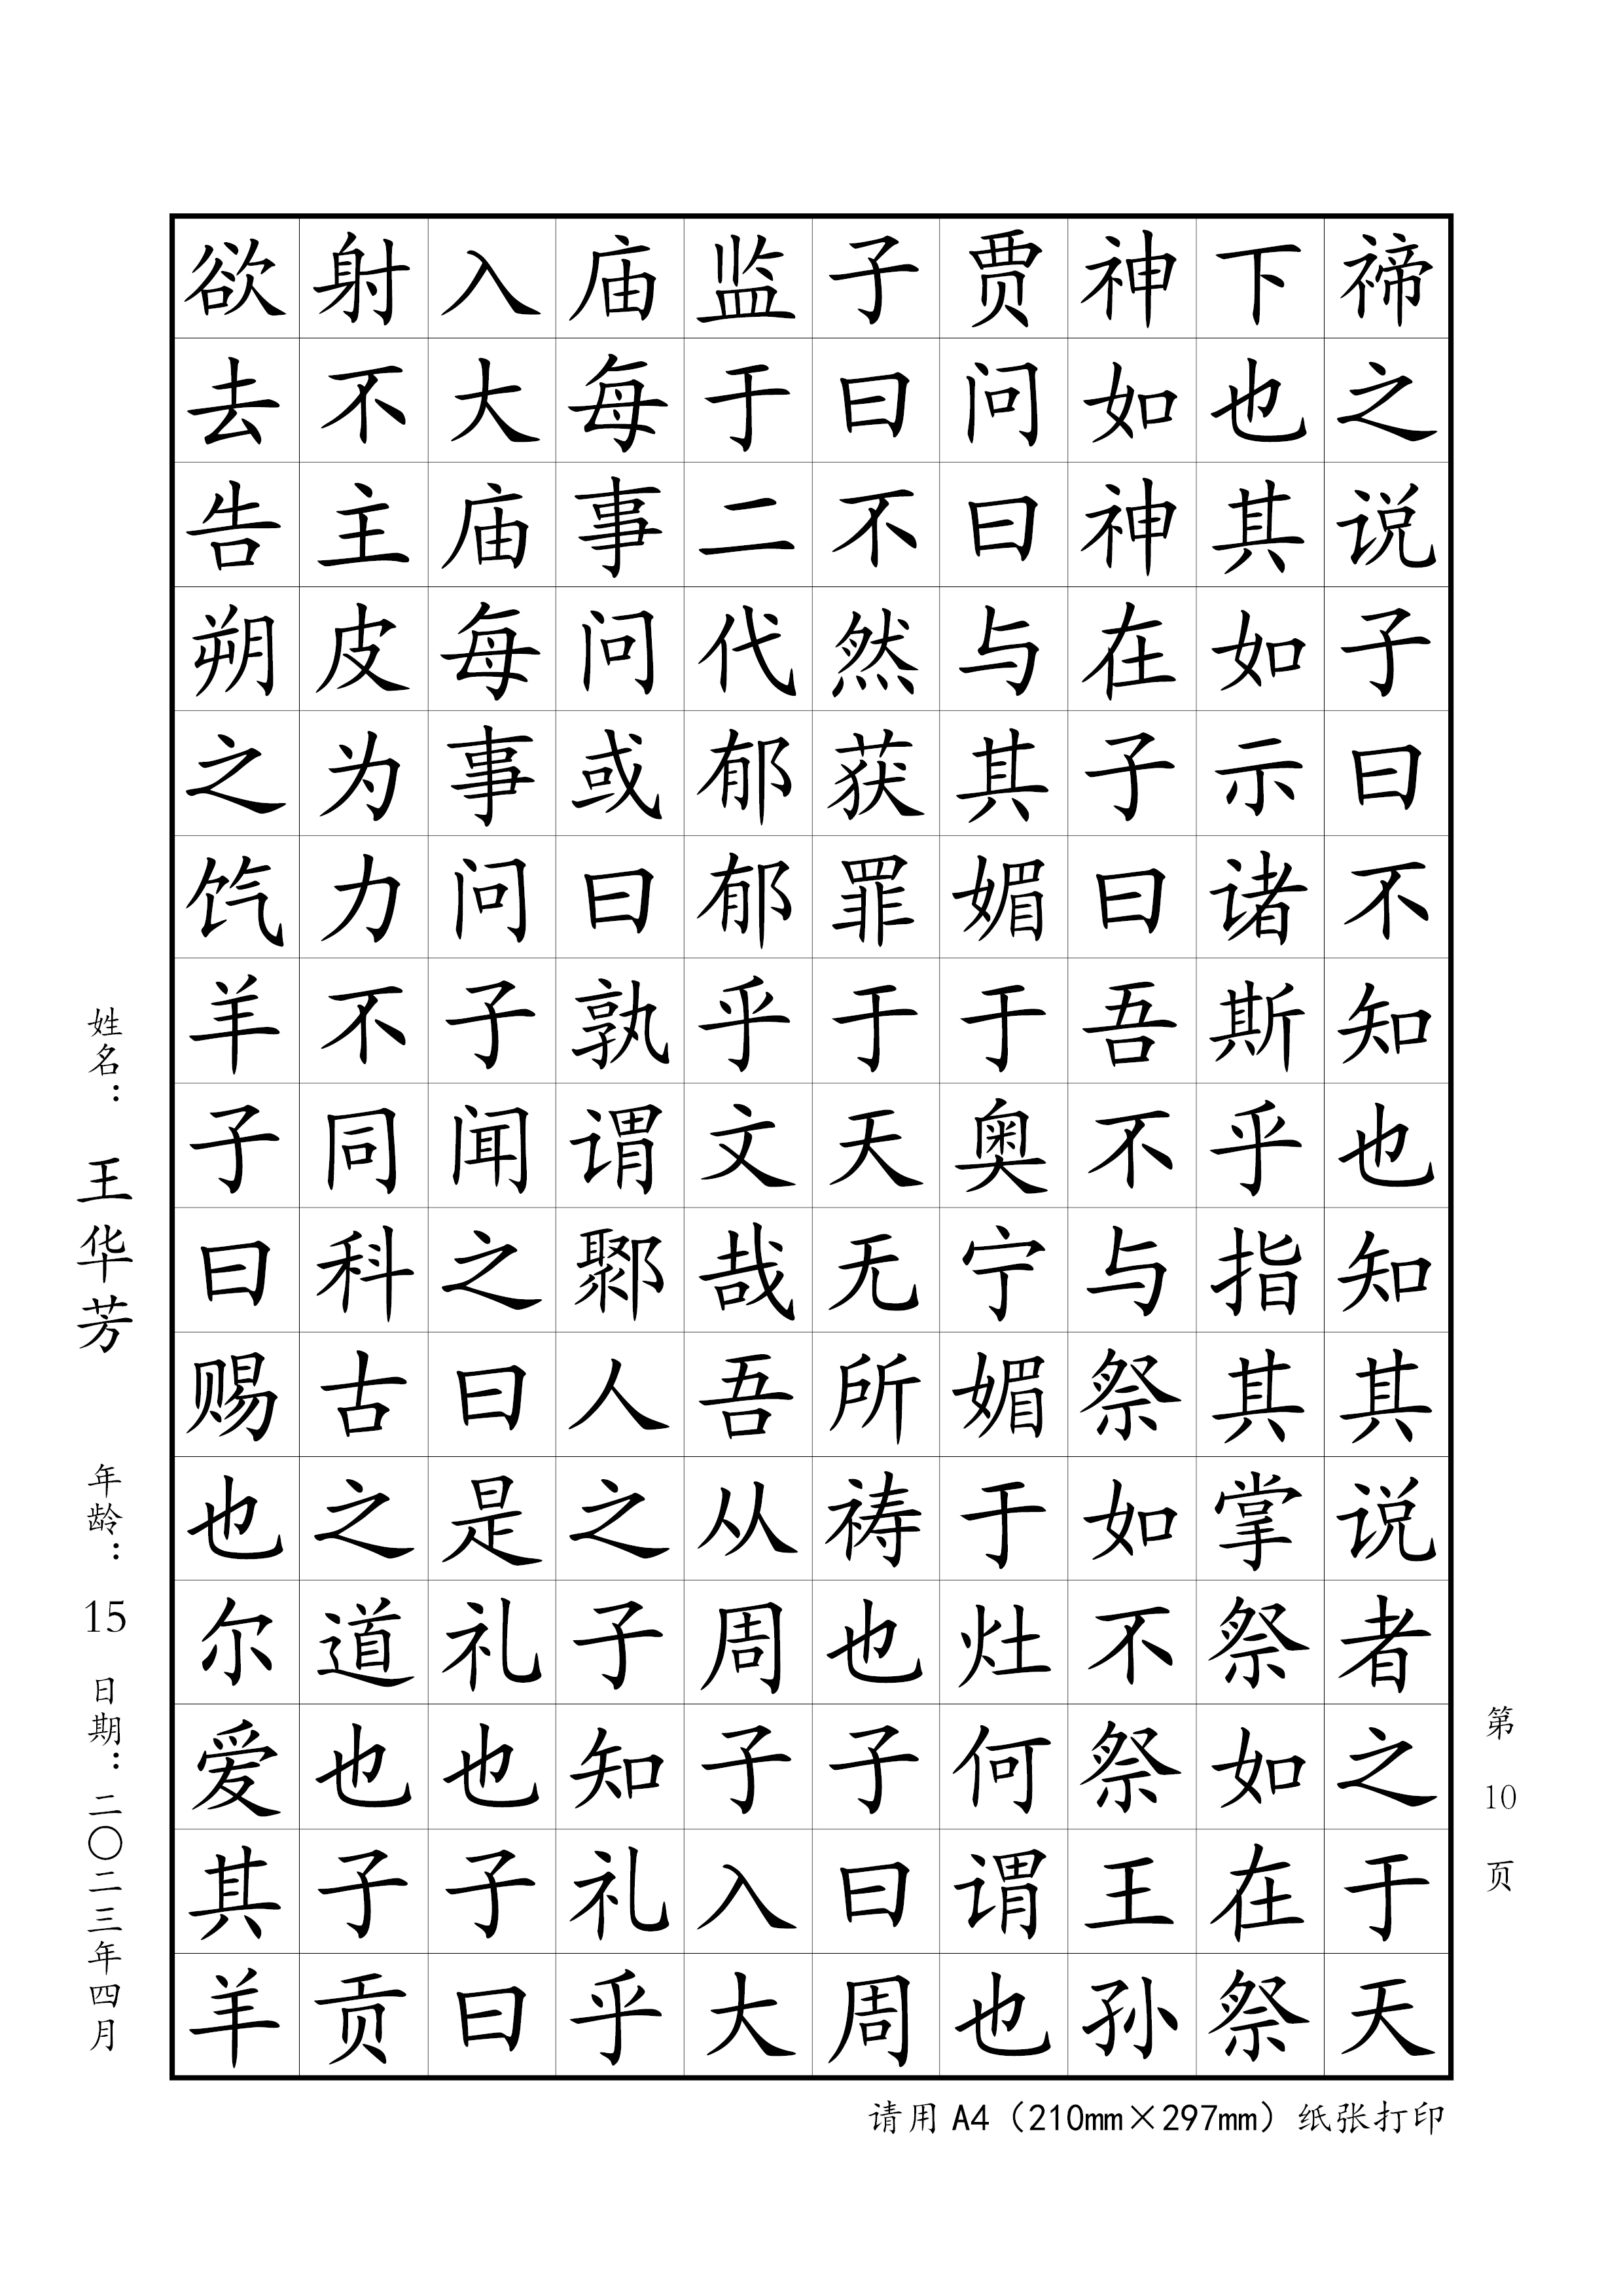 禘之说子曰不知也知其说者之于天
下也其如示诸斯乎指其掌祭如在祭
神如神在子曰吾不与祭如不祭王孙
贾问曰与其媚于奥宁媚于灶何谓也
子曰不然获罪于天无所祷也子曰周
监于二代郁郁乎文哉吾从周子入大
庙每事问或曰孰谓鄹人之子知礼乎
入大庙每事问子闻之曰是礼也子曰
射不主皮为力不同科古之道也子贡
欲去告朔之饩羊子曰赐也尔爱其羊
姓名：王华芳 年龄：15 日期：二〇二三年四月
第 10 页
请用 A4（210mm×297mm）纸张打印